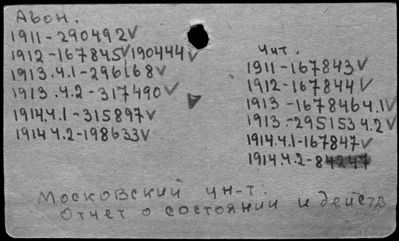 Абон.
1911-290492✓
1912-167845✓190444✓
1913.ч.1-296168✓
1913.ч.2-317490✓
1914.ч.1-315897✓
1914.ч.2-198633✓
Чит.
1911-167843✓
1912-167844✓
1913-167846ч.1✓
1913-295153ч.2✓
1914.ч.1-167847✓
1914.ч.2-
Московский ун-т.
Отчет о состоянии и действ